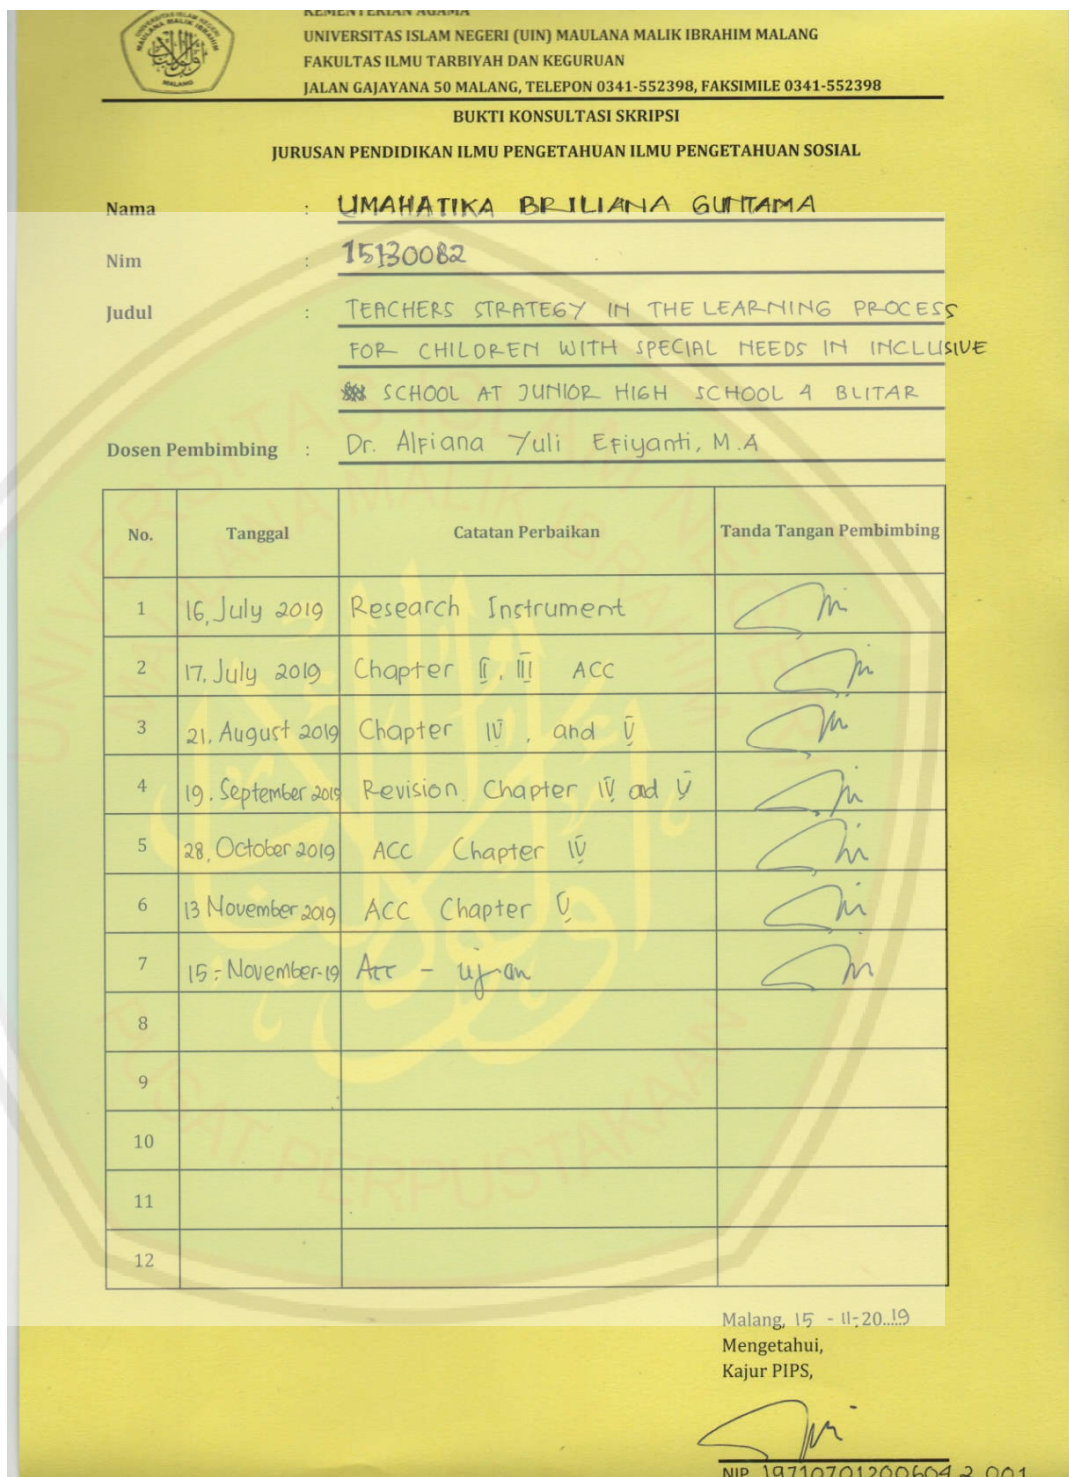 KEMENTERIAN AGAMA
UNIVERSITAS ISLAM NEGERI (UIN) MAULANA MALIK IBRAHIM MALANG
FAKULTAS ILMU TARBIYAH DAN KEGURUAN
JALAN GAJAYANA 50 MALANG, TELEPON 0341-552398, FAKSIMILE 0341-552398
BUKTI KONSULTASI SKRIPSI
JURUSAN PENDIDIKAN ILMU PENGETAHUAN ILMU PENGETAHUAN SOSIAL
Nama : UMAHATIKA BRILIANA GUNTAMA
Nim : 15130082
Judul : TEACHERS STRATEGY IN THE LEARNING PROCESS
FOR CHILDREN WITH SPECIAL NEEDS IN INCLUSIVE
SCHOOL AT JUNIOR HIGH SCHOOL 4 BLITAR
Dosen Pembimbing : Dr. Alfiana Yuli Efiyanti, M.A
No. Tanggal Catatan Perbaikan Tanda Tangan Pembimbing
1 16, July 2019 Research Instrument
2 17, July 2019 Chapter II, III ACC
3 21, August 2019 Chapter IV, and V
4 19, September 2019 Revision Chapter IV ad V
5 28, October 2019 ACC Chapter IV
6 13 November 2019 ACC Chapter V
7 15-November-19 Acc - ujian
8
9
10
11
12
Malang, 15 - 11-20..19
Mengetahui,
Kajur PIPS,
NIP 197107012006042 001
UNIVERSITAS ISLAM NEGERI
MAULANA MALIK IBRAHIM
PUSAT PERPUSTAKAAN